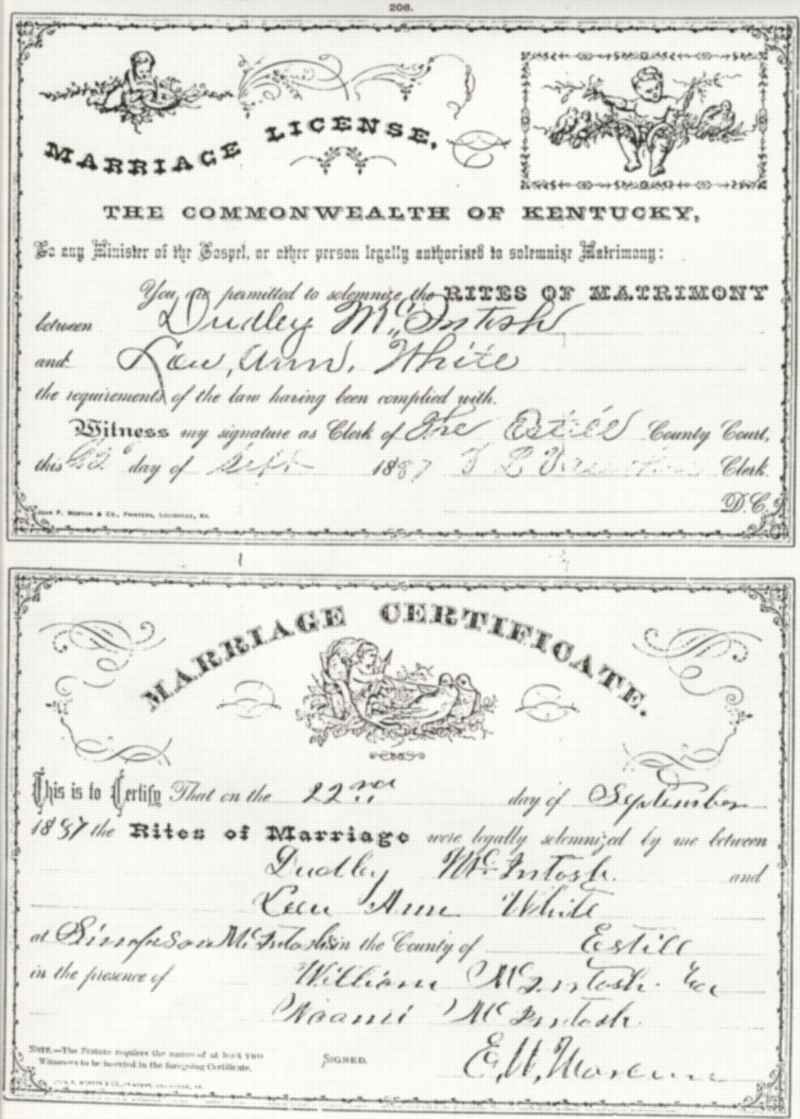 208.
MARRIAGE LICENSE,
THE COMMONWEALTH OF KENTUCKY,
To any Minister of the Gospel, or other person legally authorised to solemnize Matrimony:
You are permitted to solemnize the RITES OF MATRIMONY
between Dudley McIntosh
and Lou, Ann, White
the requirements of the law having been complied with.
Witness my signature as Clerk of The Estill County Court,
this day of Sept 1887 Clerk.
D.C.
JOHN P. MORTON & CO., PRINTERS, LOUISVILLE, KY.
MARRIAGE CERTIFICATE.
This is to Certify That on the 22nd day of September
1887 the Rites of Marriage were legally solemnized by me between
Dudley McIntosh and
Lou Ann White
at Simpson McIntosh's in the County of Estill
in the presence of William McIntosh
Naomi McIntosh.
NOTE.—The Statute requires the names of at least TWO
Witnesses to be inserted in the foregoing Certificate.
SIGNED.
JOHN P. MORTON & CO., PRINTERS, LOUISVILLE, KY.